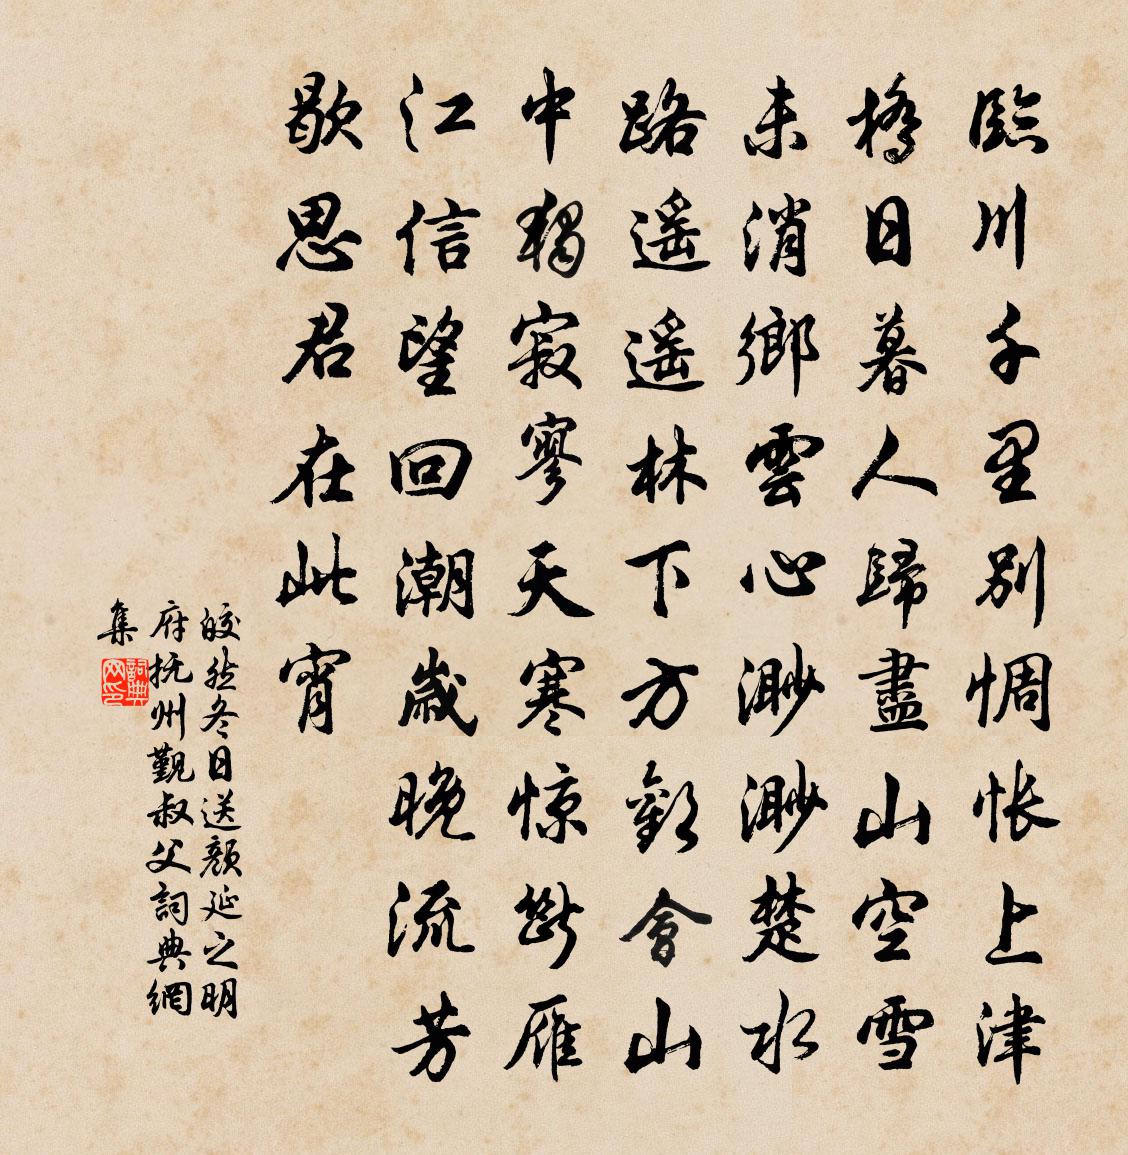 臨川千里別惆悵上津
橋日暮人歸盡山空雪
未消鄉雲心渺渺楚水
路遥遥林下方歡會山
中獨寂寥天寒惊斷雁
江信望回潮歲晚流芳
歇思君在此宵
皎然冬日送顏延之明
府抚州覲叔父詞典網
集
詞典网印